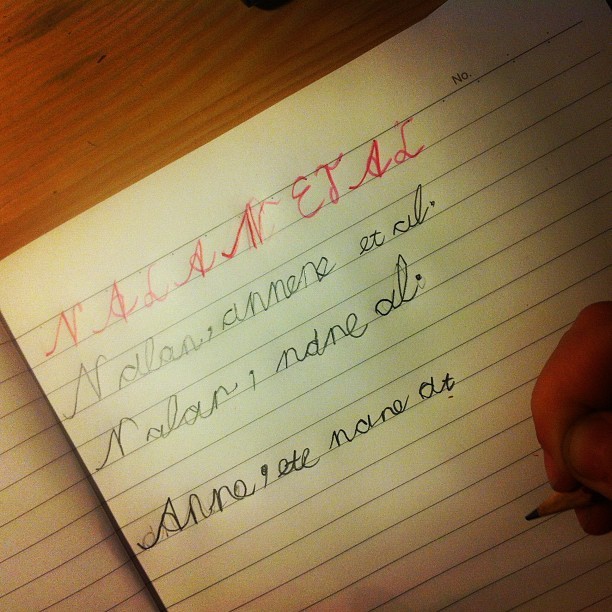 No.
NALAN ET AL
Nalan, annene et al.
Nalan, nane al.
Anne, ete nane at